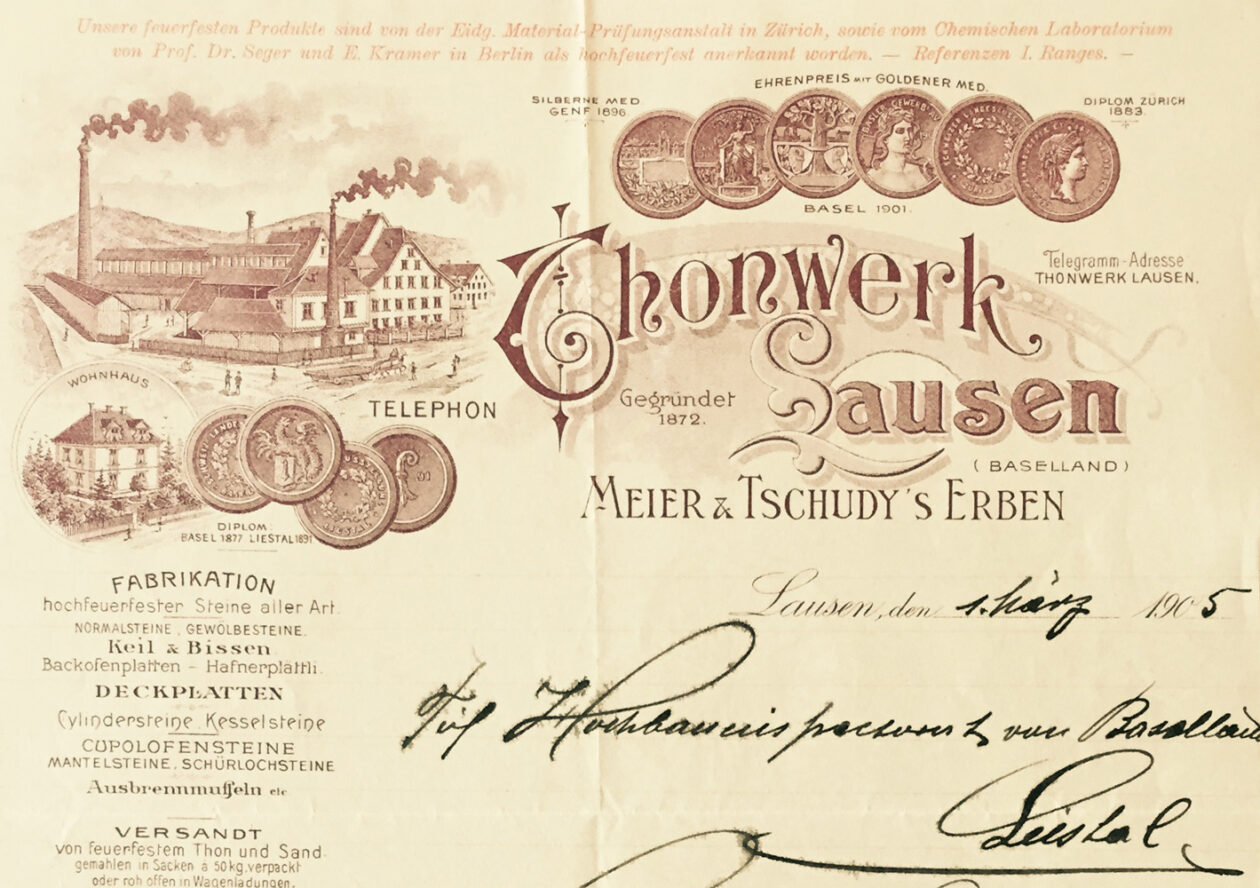 Unsere feuerfesten Produkte sind von der Eidg. Material-Prüfungsanstalt in Zürich, sowie vom Chemischen Laboratorium
von Prof. Dr. Seger und E. Kramer in Berlin als hochfeuerfest anerkannt worden. — Referenzen I. Ranges. —
EHRENPREIS MIT GOLDENER MED.
SILBERNE MED.
GENF 1896
DIPLOM ZÜRICH
1883.
BASEL 1901.
Thonwerk
Lausen
(BASELLAND)
Telegramm-Adresse
THONWERK LAUSEN.
Gegründet
1872.
MEIER & TSCHUDY'S ERBEN
WOHNHAUS
TELEPHON
DIPLOM:
BASEL 1877 LIESTAL 1891
FABRIKATION
hochfeuerfester Steine aller Art.
NORMALSTEINE, GEWÖLBESTEINE.
Keil & Bissen
Backofenplatten - Hafnerplättli.
DECKPLATTEN
Cylindersteine, Kesselsteine
CUPOLOFENSTEINE
MANTELSTEINE, SCHÜRLOCHSTEINE
Ausbrennmuffeln etc
VERSANDT
von feuerfestem Thon und Sand
gemahlen in Säcken à 50 kg. verpackt
oder roh offen in Wagenladungen.
Lausen, den 1. März 1905
Hochbauinspectorat von Baselland
Liestal